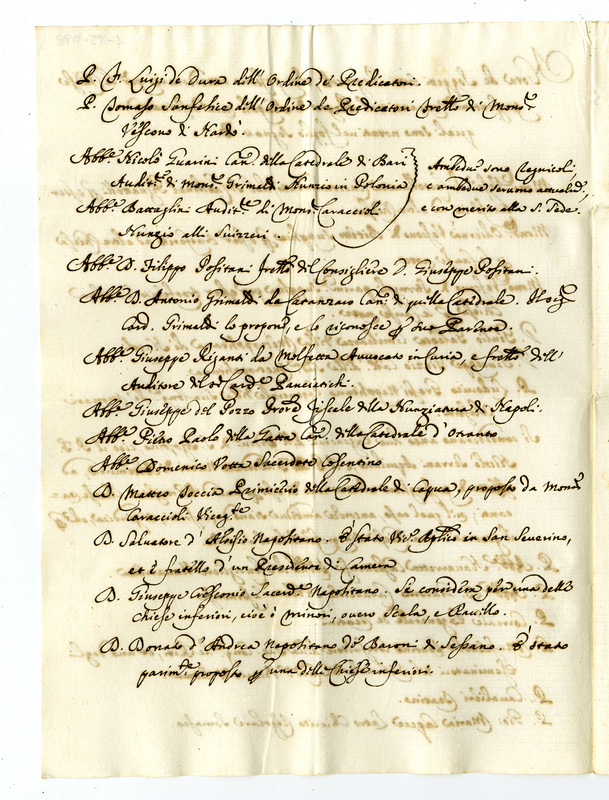 P. Fr. Luigi de Dura dell' Ordine de' Predicatori.
P. Tomaso Sanfelice dell' Ordine de Predicatori fretto di Monsre
Vescovo di Nardò.
Abbe Nicolò Guarini Canco della Catedrale di Bari
Auditre di Monsre Grimaldi Nunzio in Polonia
Abbe Battaglini Auditre di Monsre Caraccioli
Nunzio alli Suizzeri.
Ambedui sono Regnicoli,
e ambedue servono
e con merito alla S. Sede.
Abbe D. Filippo Positani fretto del Consigliere D. Giuseppe Positani.
Abbe D. Antonio Grimaldi da Catanzaro Canco di quella Catedrale. Il
Card. Grimaldi lo propone, e lo riconosce per suo Parente.
Abbe Giuseppe Rizanti da Molfetta Auvocato in Curia, e fretto dell'
Auditore del Sr Carde Panciatichi.
Abbe Giuseppe del Pozzo Fiscale della Nunziatura di Napoli.
Abbe Pietro Paolo della Gatta Canco della Catedrale d'Otranto
Abbe Domenico Votta Sacerdote Cosentino
D. Matteo Poccia Primicerio della Catedrale di Capua, proposto da Monsre
Caraccioli Vicegte
D. Salvatore d' Aloisio Napolitano. È stato Vico Aplico in San Severino,
et è fratello d'un Presidente di Camera
D. Giuseppe Cresconio Sacerde Napolitano. Si considera per una delle
Chiese inferiori, cioè ò Minori, overo Scala, e Ravello.
D. Donato d'Andrea Napolitano de' Baroni di Sessano. È stato
parimte proposto per una delle Chiese inferiori.